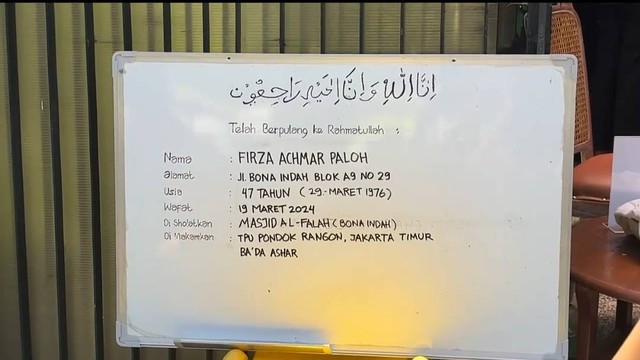 إِنَّا لِلّٰهِ وَإِنَّا إِلَيْهِ رَاجِعُوْنَ
Telah Berpulang ke Rahmatullah :
Nama : FIRZA ACHMAR PALOH
Alamat : Jl. BONA INDAH BLOK A9 NO 29
Usia : 47 TAHUN ( 29.-MARET 1976)
Wafat : 19 MARET 2024
Di Sholatkan : MASJID AL-FALAH (BONA INDAH)
Di Makamkan : TPU PONDOK RANGON, JAKARTA TIMUR
BA'DA ASHAR